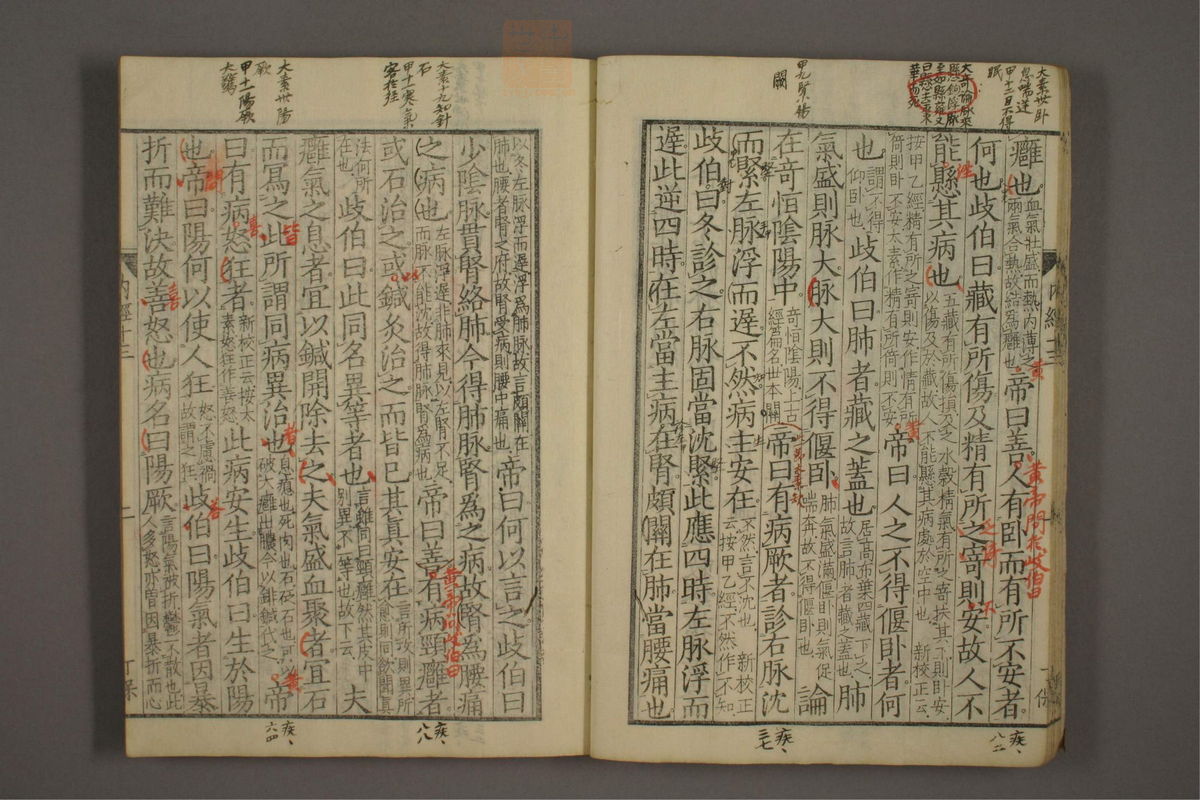 太素卅卧息喘逆
甲十二目不得眠
大奇論脉來
懸鉤浮脉
甲九腎腸
癰也血氣壯盛而熱內薄之兩氣合熱故結爲癰也帝曰善人有卧而有所不安者
何也歧伯曰藏有所傷及精有所之寄則安故人不
能懸其病也五藏有所傷損及之水穀精氣有所之寄扶其下則卧安以傷及於藏故人不能懸其病處於空中也 新校正云
按甲乙經精有所之寄則安作情有所倚則卧不安太素作精有所倚則不安帝曰人之不得偃卧者何
也謂不得仰卧也歧伯曰肺者藏之蓋也居高布葉四藏下之故言肺者藏之蓋也肺
氣盛則脉大脉大則不得偃卧肺氣盛滿偃卧則氣促喘奔故不得偃卧也論
在奇恒陰陽中奇恒陰陽上古經篇名世本闕帝曰有病厥者診右脉沈
而緊左脉浮而遲不然病主安在不然言不沈也 新校正云按甲乙經不然作不知
歧伯曰冬診之右脉固當沈緊此應四時左脉浮而
遲此逆四時在左當主病在腎頗關在肺當腰痛也
黃帝問於歧伯曰
疾、八二
疾、三七
內經十三
太素十九知針石
甲十一寒氣客於經
太素卅陽厥
甲十一陽厥大驚
以冬左脉浮而遲浮爲肺脉故言頗關在肺也腰者腎之府故腎受病則腰中痛也帝曰何以言之歧伯曰
少陰脉貫腎絡肺今得肺脉腎爲之病故腎爲腰痛
之病也左脉浮遲非肺來見以左腎不足而脉不能沈故得肺脉腎爲病也帝曰善有病頸癰者
或石治之或鍼灸治之而皆已其眞安在言所攻則異所愈則同欲聞眞
法何所在也歧伯曰此同名異等者也言雖同曰頸癰然其皮中別異不一等也故下云夫
癰氣之息者宜以鍼開除去之夫氣盛血聚者宜石
而寫之此所謂同病異治也息瘜也死肉也石砭石也可以破大癰出膿今以䤵鍼代之帝
曰有病怒狂者新校正云按太素怒狂作喜怒此病安生歧伯曰生於陽
也帝曰陽何以使人狂怒不慮禍故謂之狂歧伯曰陽氣者因暴
折而難決故善怒也病名曰陽厥言陽氣被折鬱不散也此人多怒亦曽因暴折而心
黃帝問歧伯曰
疾、八八
疾、六四
內經十三
二